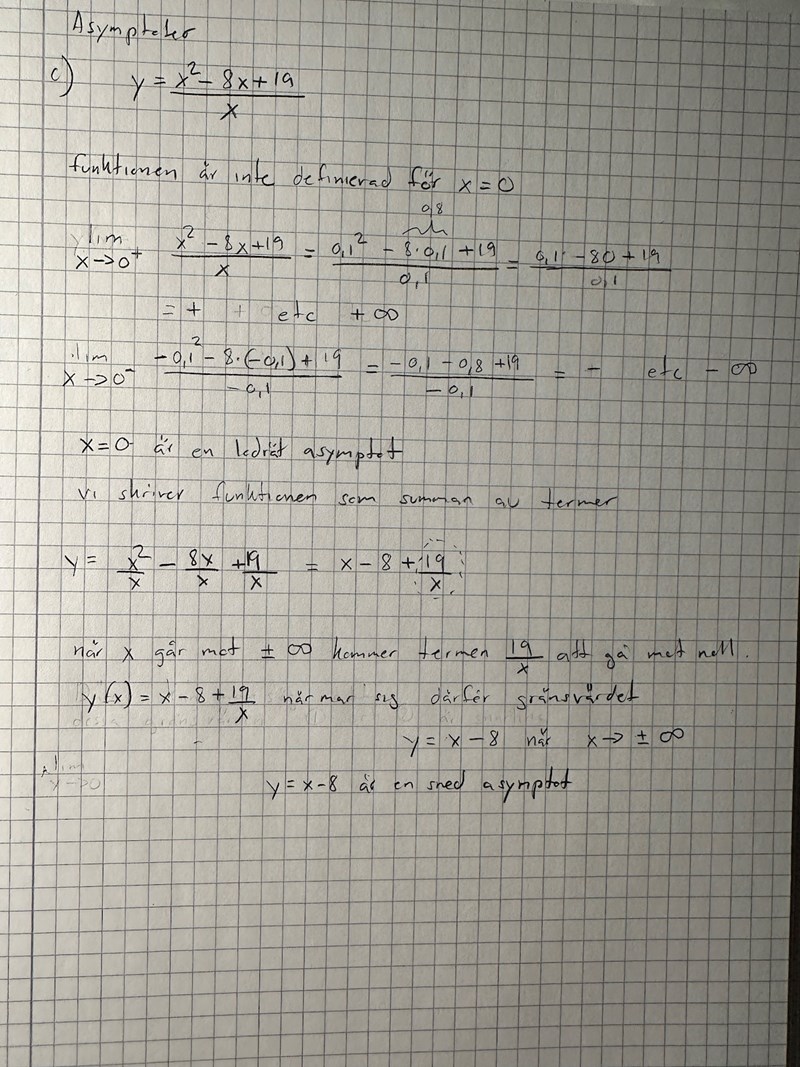 Asymptoter
c) y = (x² - 8x + 19)/x
funktionen är inte definierad för x = 0
0,8
lim x→0⁺ (x² - 8x + 19)/x = (0,1² - 8·0,1 + 19)/0,1 = (0,1 - 80 + 19)/0,1
= + + etc +∞
lim x→0⁻ (-0,1² - 8·(-0,1) + 19)/-0,1 = (-0,1 - 0,8 + 19)/-0,1 = - etc -∞
x = 0 är en lodrät asymptot
vi skriver funktionen som summan av termer
y = x²/x - 8x/x + 19/x = x - 8 + 19/x
när x går mot ±∞ kommer termen 19/x att gå mot noll.
y(x) = x - 8 + 19/x närmar sig därför gränsvärdet
y = x - 8 når x → ±∞
lim x→0
y = x - 8 är en sned asymptot